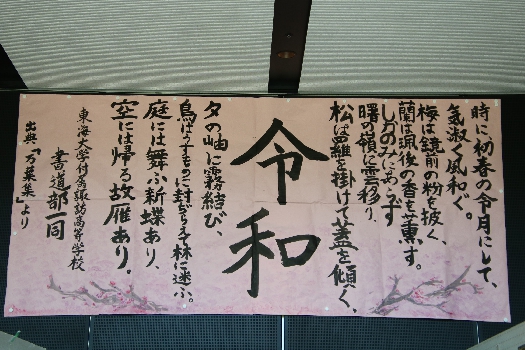 時に初春の令月にして、
気淑く風和ぐ。
梅は鏡前の粉を披く、
蘭は珮後の香を薫す。
しかのみにあらず
曙の嶺に雲移り、
松は羅を掛けて蓋を傾く、
令和
夕の岫に霧結び、
鳥はうすものに封ぢらえて林に迷ふ。
庭には舞ふ新蝶あり、
空には帰る故雁あり。
東海大学付属諏訪高等学校
書道部一同
出典「万葉集」より